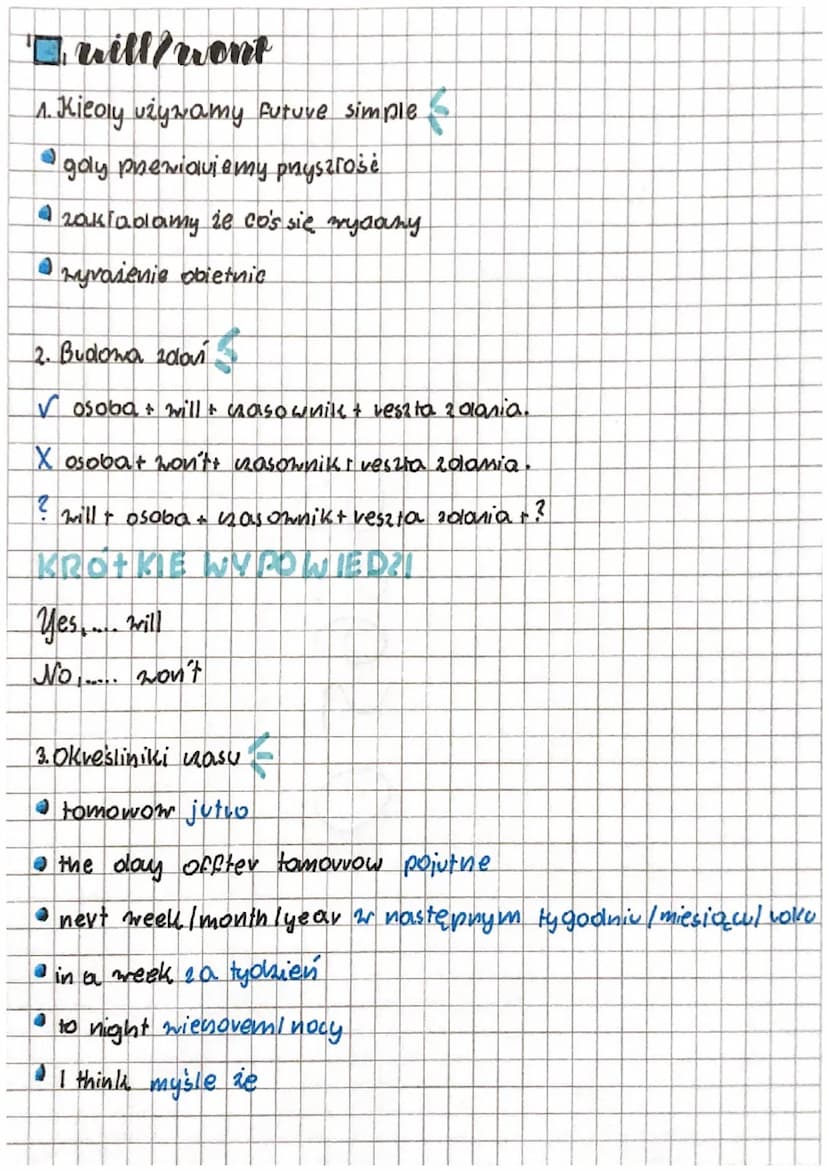 will/wont
1. Kiedy używamy future simple
gdy przewidujemy przyszłość
zakładamy że coś się wydarzy
wyrażenie obietnic
2. Budowa zdań
✓ osoba + will + czasownik + reszta zdania.
X osoba + won't + czasownik + reszta zdania.
? will + osoba + czasownik + reszta zdania + ?
KRÓtKIE WYPOWIEDZI
Yes, .... will
No, ..... won't
3. Określiniki czasu
tomowow jutro
the day offter tomorrow pojutrze
next week/month/year w następnym tygodniu/miesiącu/roku
in a week za tydzień
to night wieczorem/nocy
I think myśle że